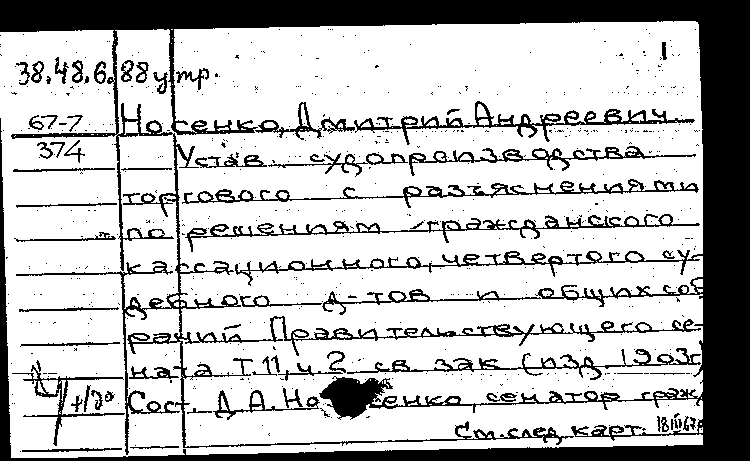 1
38.48.6.88 утр.
67-7 Носенко, Дмитрий Андреевич
374 Устав судопроизводства
торгового с разъяснениями
по решениям гражданского
кассационного, четвертого су-
дебного д-тов и общих соб
раний Правительствующего се-
ната Т. 11, ч. 2 св. зак (изд. 1903г)
Сост. Д. А. Но сенко, сенатор граж
См. след карт.